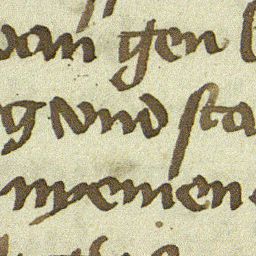 van gen
g vnd sta
nyemen